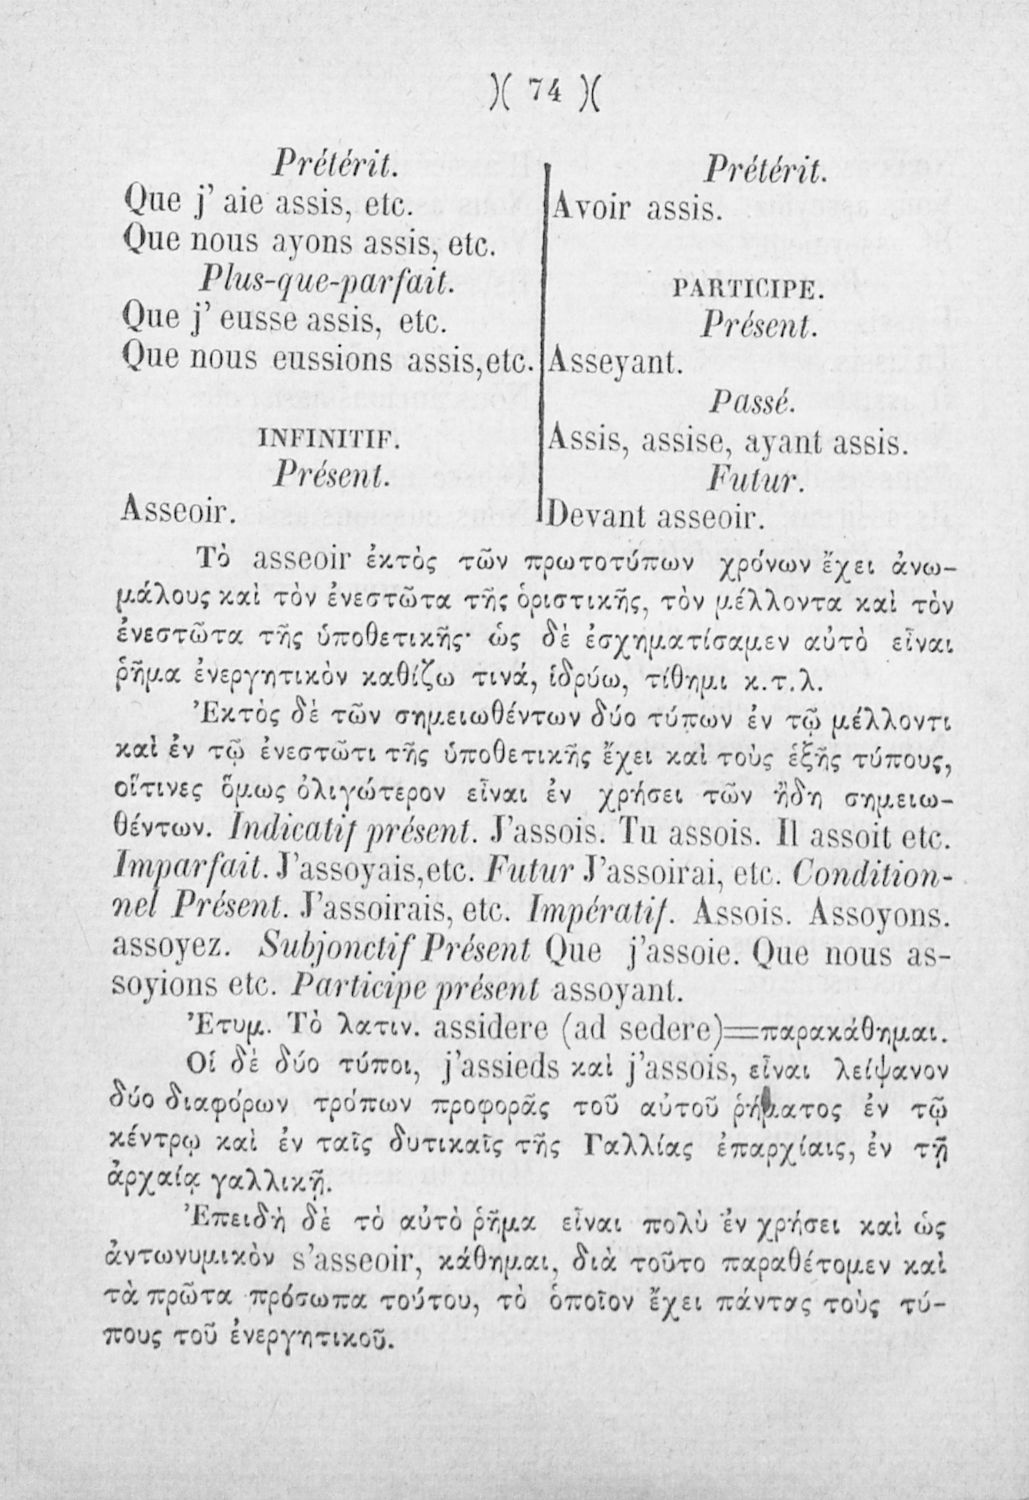 )( 74 )(
Prétérit.
Que j' aie assis, etc.
Que nous ayons assis, etc.
Plus-que-parfait.
Que j' eusse assis, etc.
Que nous eussions assis, etc.
INFINITIF.
Présent.
Asseoir.
Prétérit.
Avoir assis.
PARTICIPE.
Présent.
Asseyant.
Passé.
Assis, assise, ayant assis.
Futur.
Devant asseoir.
Τὸ asseoir ἐκτὸς τῶν πρωτοτύπων χρόνων ἔχει ἀνω-
μάλους καὶ τὸν ἐνεστῶτα τῆς ὁριστικῆς, τὸν μέλλοντα καὶ τὸν
ἐνεστῶτα τῆς ὑποθετικῆς· ὡς δὲ ἐσχηματίσαμεν αὐτὸ εἶναι
ῥῆμα ἐνεργητικὸν καθίζω τινά, ἱδρύω, τίθημι κ.τ.λ.
Ἐκτὸς δὲ τῶν σημειωθέντων δύο τύπων ἐν τῷ μέλλοντι
καὶ ἐν τῷ ἐνεστῶτι τῆς ὑποθετικῆς ἔχει καὶ τοὺς ἑξῆς τύπους,
οἵτινες ὅμως ὀλιγώτερον εἶναι ἐν χρήσει τῶν ἤδη σημειω-
θέντων. Indicatif présent. J'assois. Tu assois. Il assoit etc.
Imparfait. J'assoyais, etc. Futur J'assoirai, etc. Condition-
nel Présent. J'assoirais, etc. Impératif. Assois. Assoyons.
assoyez. Subjonctif Présent Que j'assoie. Que nous as-
soyions etc. Participe présent assoyant.
Ἐτυμ. Τὸ λατιν. assidere (ad sedere)=παρακάθημαι.
Οἱ δὲ δύο τύποι, j'assieds καὶ j'assois, εἶναι λείψανον
δύο διαφόρων τρόπων προφορᾶς τοῦ αὐτοῦ ῥήματος ἐν τῷ
κέντρῳ καὶ ἐν ταῖς δυτικαῖς τῆς Γαλλίας ἐπαρχίαις, ἐν τῇ
ἀρχαίᾳ γαλλικῇ.
Ἐπειδὴ δὲ τὸ αὐτὸ ῥῆμα εἶναι πολὺ ἐν χρήσει καὶ ὡς
ἀντωνυμικὸν s'asseoir, κάθημαι, διὰ τοῦτο παραθέτομεν καὶ
τὰ πρῶτα πρόσωπα τούτου, τὸ ὁποῖον ἔχει πάντας τοὺς τύ-
πους τοῦ ἐνεργητικοῦ.